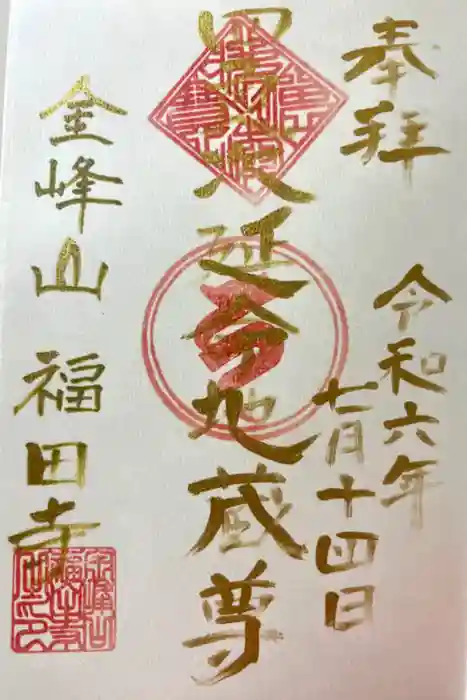 奉拝
令和六年
七月十四日
延命地蔵尊
金峰山 福田寺
金峰山
福田寺
之印